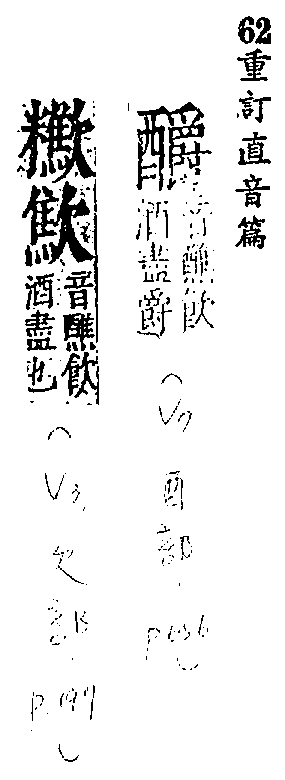 62重訂直音篇
釂
音醮飲
酒盡爵
(V7 酉部. P636)
音醮飲
酒盡也
(V3. 欠部. P.199)